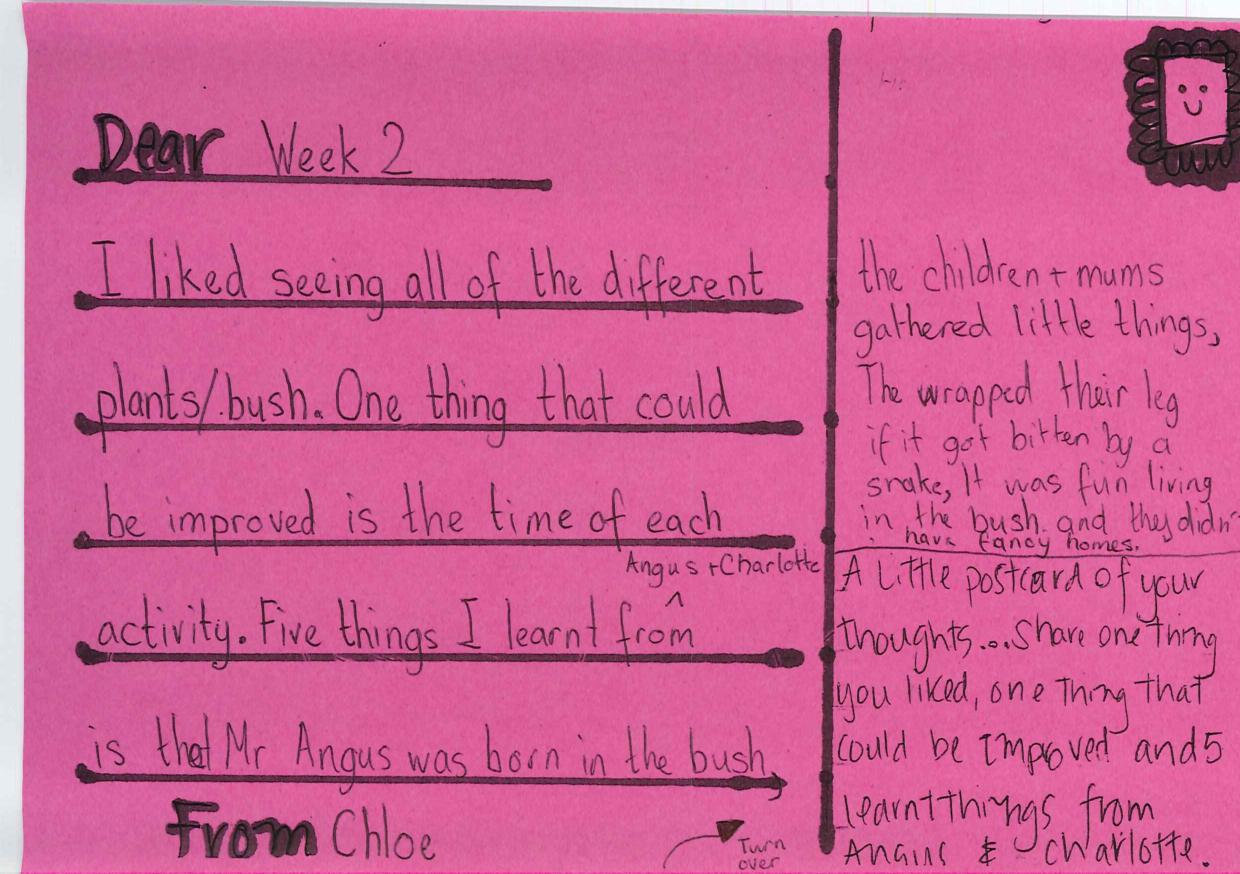 Dear Week 2
I liked seeing all of the different
plants/bush. One thing that could
be improved is the time of each
Angus + Charlotte
activity. Five things I learnt from ^
is that Mr Angus was born in the bush,
From Chloe
Turn
over
the children + mums
gathered little things,
The wrapped their leg
if it got bitten by a
snake, It was fun living
in the bush. and they didn'
have fancy homes.
A Little postcard of your
thoughts... Share one thing
you liked, one thing that
could be improved and 5
learnt things from
Angus & Charlotte.